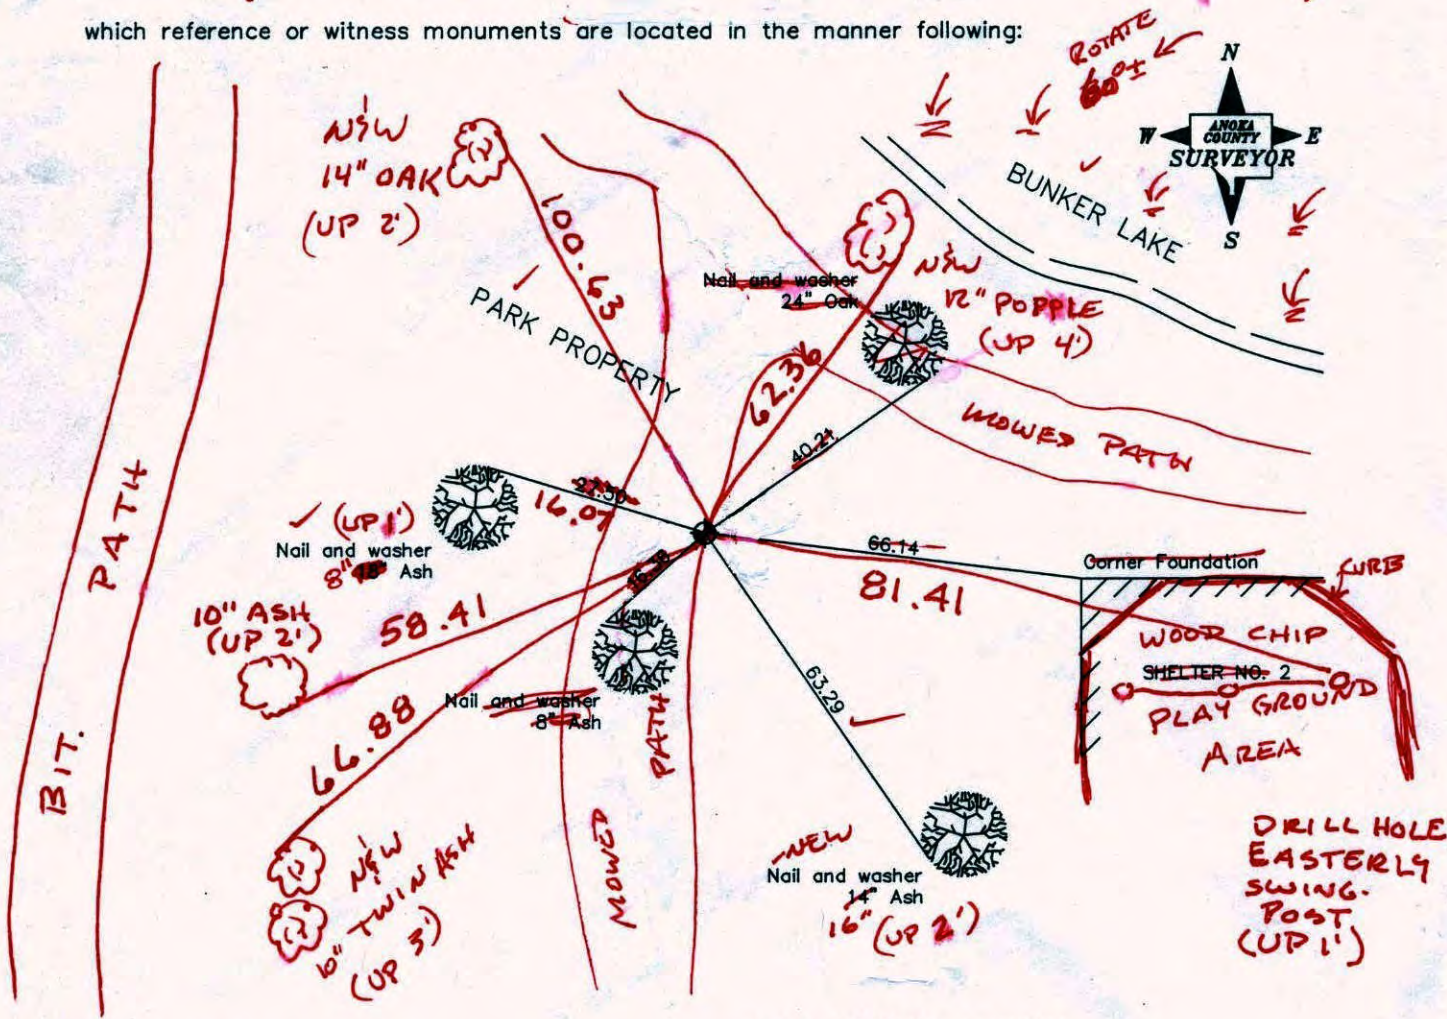 which reference or witness monuments are located in the manner following:
ROTATE
N
W ANOKA COUNTY E
SURVEYOR
S
BUNKER LAKE
N&W
14" OAK
(UP 2')
100.63
PARK PROPERTY
Nail and washer
24" Oak
N&W
12" POPPLE
(UP 4')
62.36
40.21
MOWED PATH
16.07
(UP 1')
Nail and washer
8" Ash
10" ASH
(UP 2')
58.41
66.14
81.41
Corner Foundation
CURB
WOOD CHIP
SHELTER NO. 2
PLAY GROUND
AREA
66.88
Nail and washer
8" Ash
63.29
BIT. PATH
MOWED PATH
N&W
10" TWIN ASH
(UP 3')
NEW
Nail and washer
14" Ash
16" (UP 2')
DRILL HOLE
EASTERLY
SWING.
POST
(UP 1')